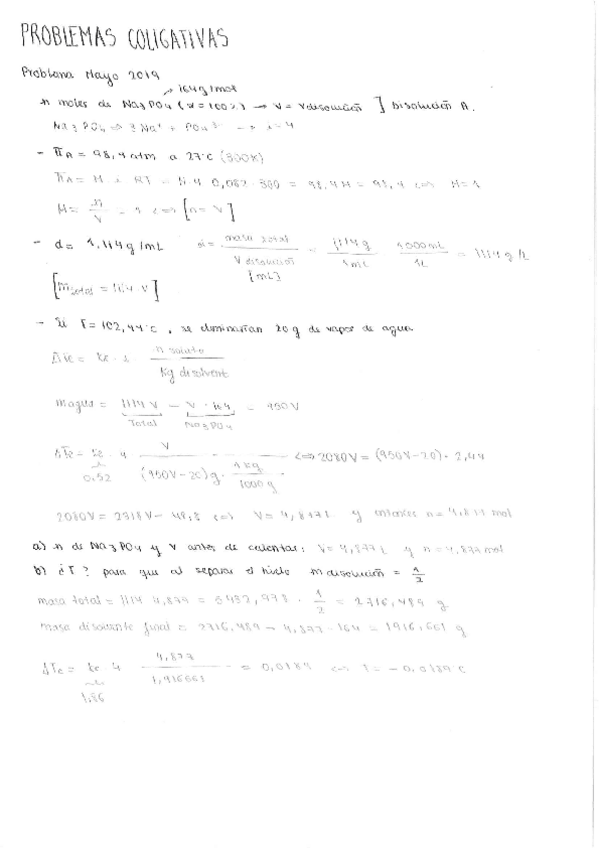 PROBLEMAS COLIGATIVAS
Problema Mayo 2019
164g/mol
n moles de Na3PO4 (α=100%) → V = Vdisolución ] Disolución A.
Na3PO4 => 3Na+ + PO4 3- → i=4
- πA = 98,4 atm a 27°C (300K)
πA = M · i · RT = M · 4 · 0,082 · 300 = 98,4 M = 98,4 <=> M=1
M = n/V = 1 <=> [n = V]
- d = 1,114 g/mL d = masa total / V disolución [mL] = 1,114 g / 1mL · 1000mL / 1L = 1114 g/L
[mtotal = 1114 V]
- Si T=102,44°C, se eliminarían 20g de vapor de agua
ΔTe = ke · i · n soluto / kg disolvent
magua = 1114 V - V · 164 = 950 V
Total Na3PO4
ΔTe = ke · 4 · V / (950V-20)g · 1kg / 1000g <=> 2080V = (950V-20) · 2,44
0,52
2080V = 2318V - 48,8 <=> V = 4,877L y entonces n = 4,877 mol
a) n de Na3PO4 y V antes de calentar: V=4,877L y n=4,877mol
b) ¿T? para que al separar el hielo m disolución = 1/2
masa total = 1114 · 4,877 = 5432,978 · 1/2 = 2716,489 g
masa disolvante final = 2716,489 - 4,877 · 164 = 1916,661 g
4 4,877 / 1,916661
1,86